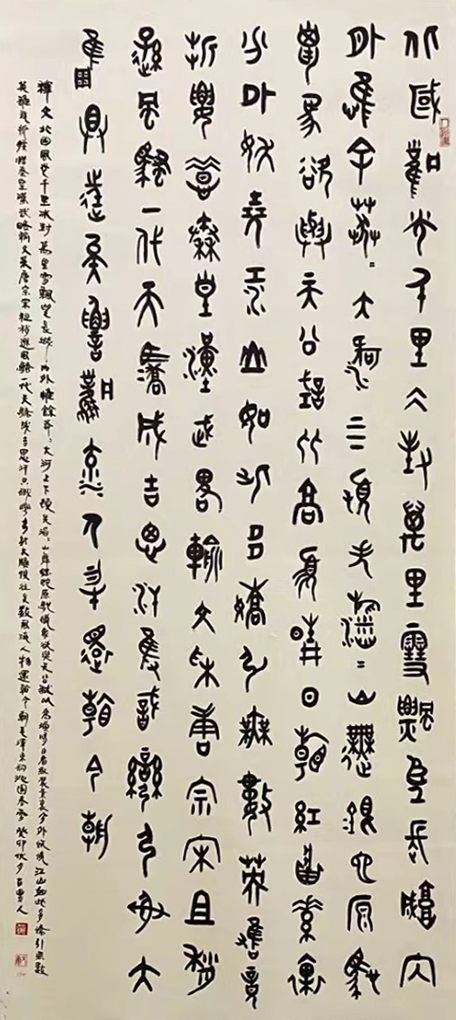 北國風光千里冰封萬里雪飄望長城內
外惟余莽=大河上下頓失滔=山舞銀蛇原馳
蠟象欲與天公試比高須晴日看紅裝素裹
分外妖嬈江山如此多嬌引無數英雄競
折腰惜秦皇漢武略輸文采唐宗宋祖稍
遜風騷一代天驕成吉思汗隻識彎弓射大
雕俱往矣數風流人物還看今朝
釋文北國風光千里冰封萬里雪飄望長城內外惟餘莽=大河上下頓失滔=山舞銀蛇原馳蠟象欲與天公試比高須晴日看紅裝素裹分外妖嬈江山如此多嬌引無數
英雄競折腰惜秦皇漢武略輸文采唐宗宋祖稍遜風騷一代天驕成吉思汗只識彎弓射大雕俱往矣數風流人物還看今朝毛澤東詞沁園春雪癸卯秋夕